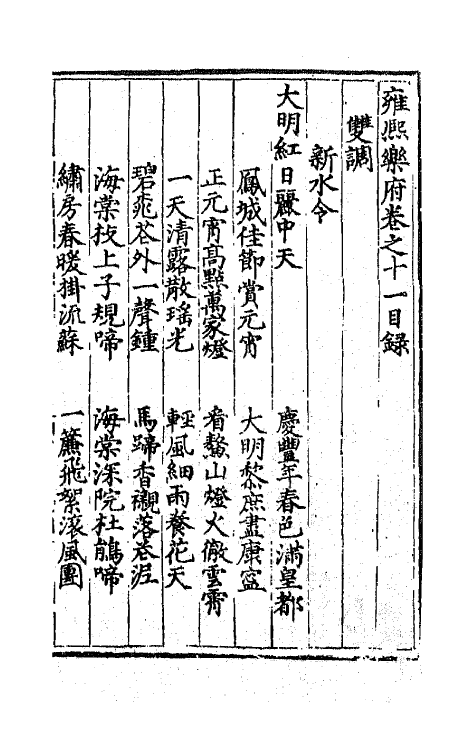 雍熙樂府卷之十一目録
雙調
新水令
大明紅日麗中天　慶豐年春色滿皇都
鳳城佳節賞元宵　大明黎庶盡康寧
正元宵高點萬家燈　看鰲山燈火徹雲霄
一天清露散瑤光　輕風細雨養花天
碧桃花外一聲鍾　馬蹄香襯落花泥
海棠枝上子規啼　海棠深院杜鵑啼
繡房春暖掛流蘇　一簾飛絮滚風團